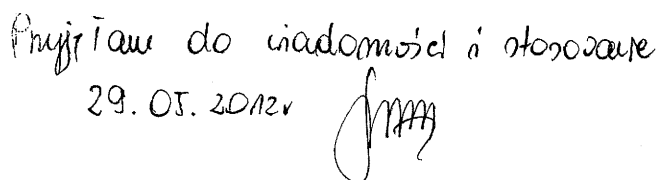 Przyjęłam do wiadomości i stosowanie
29.05.2012r